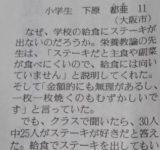 小学生 下原 都亜 11
(大阪市)
なぜ、学校の給食にステーキが
出ないのだろうか。栄養教諭の先
生は、「ステーキだと主食や副菜
が食べにくいので、給食には向い
ていません」と説明してくれた。
そして「金額的にも無理があるし、
一枚一枚焼くのもむずかしいで
す」と言っていた。
でも、クラスで聞いたら、30人
中25人がステーキが好きだと答え
た。給食でステーキを出しても